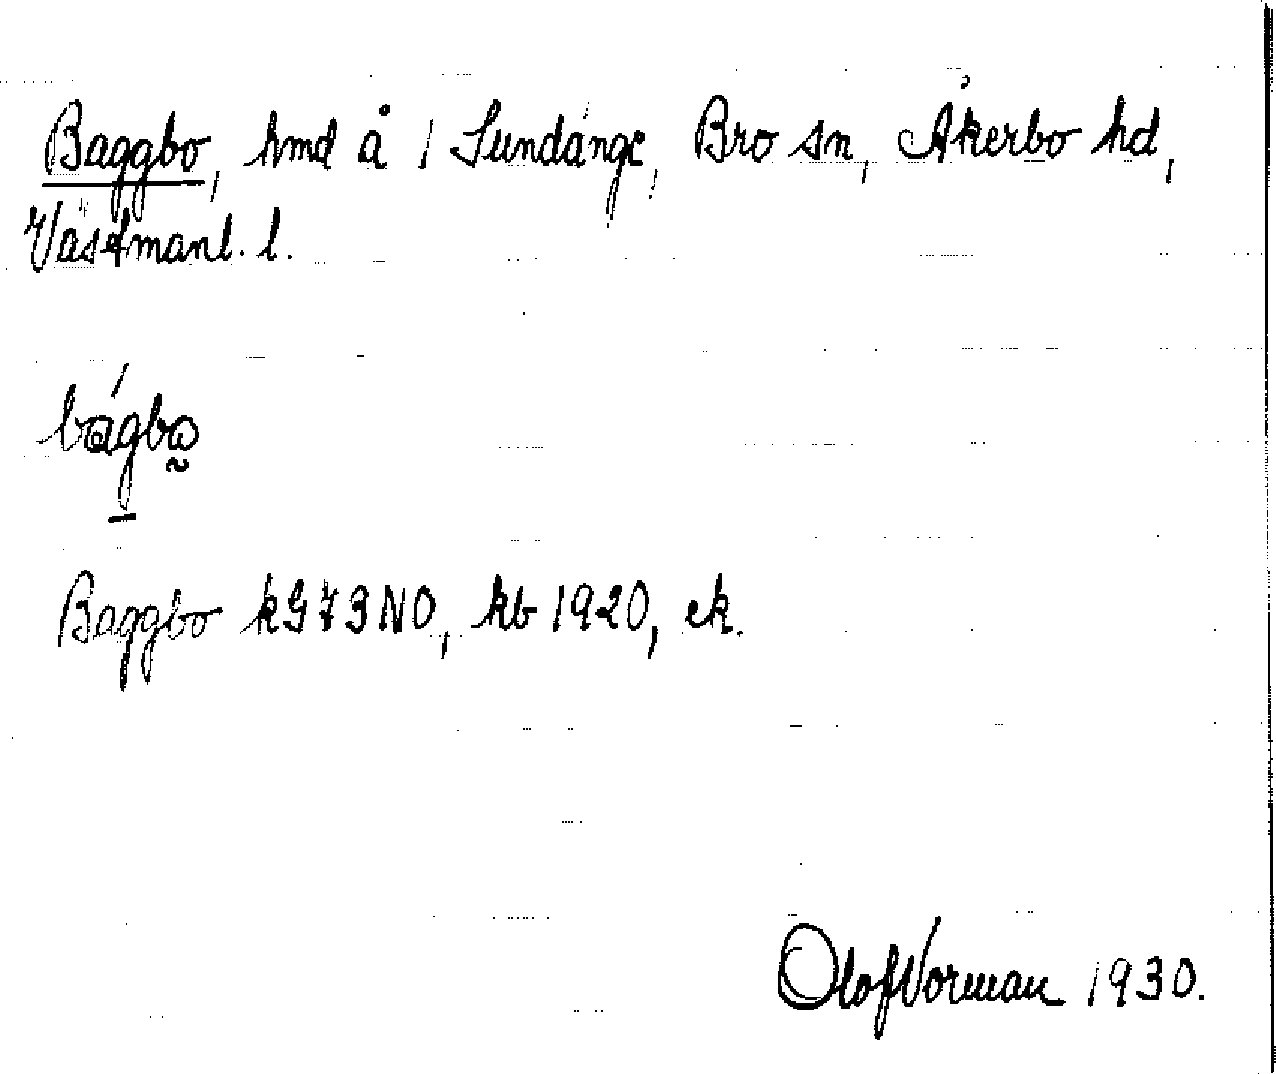 Baggbo, hmd å 1 Sundänge, Bro sn, Åkerbo hd,
Västmanl. l.
bágbo
Baggbo kG73NO, kb 1920, ek.
Olof Norman 1930.